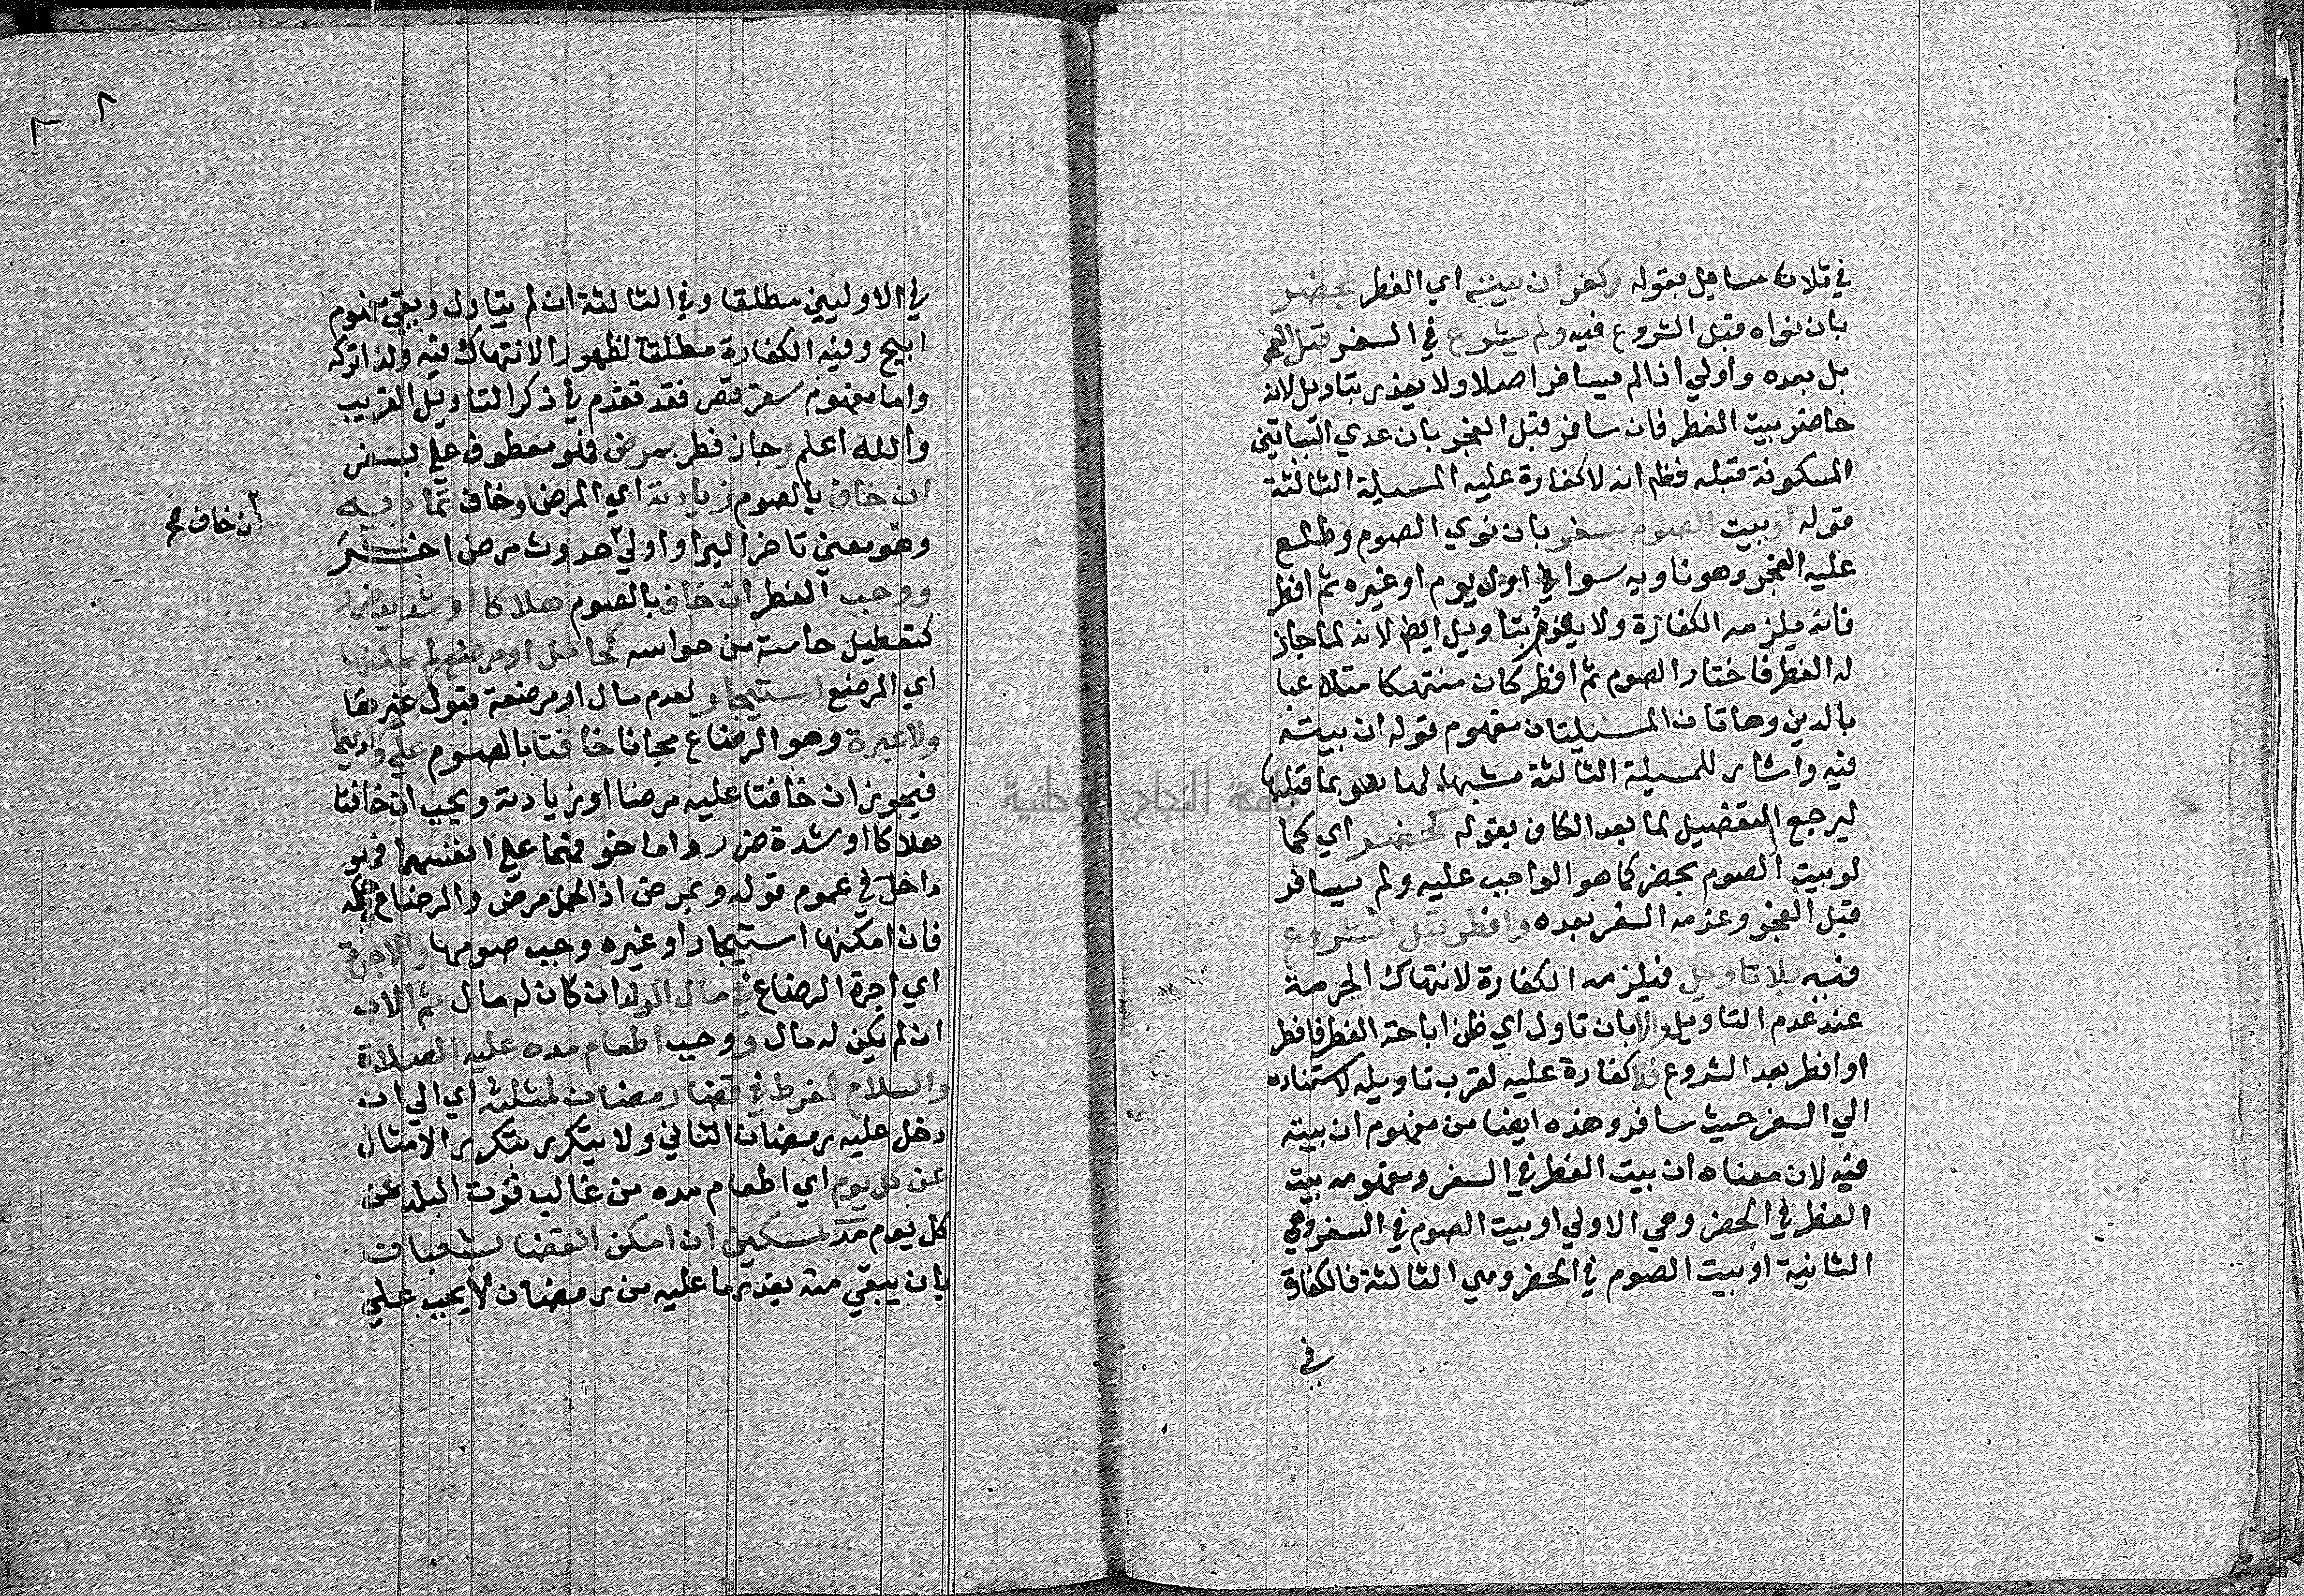 في ثلاث مسايل بقوله وكفر ان بيته اي الفطر بحضر
بان نواه قبل الشروع فيه ولم يشرع في السفر قبل الفجر
بل بعده واولي اذا لم يسافر اصلا ولا يعذر بتاويل لانه
حاضر بيت الفطر فان سافر قبل الفجر بان عدي البساتين
المسكونة قبله فظم انه لا كفارة عليه المسيلة الثالثة
قوله او بيت الصوم بسفر بان نوي الصوم وطلع
عليه الفجر وهو ناويه سوا في اول يوم او غيره ثم افطر
فانه يلزمه الكفارة ولا يعذر بتاويل ايض لانه لما جاز
له الفطر فاختار الصوم ثم افطر كان منتهكا متلاعبا
بالدين وهاتان المسيلتان مفهوم قوله ان بيته
فيه واشار للمسيلة الثالثة مشبها لها بما قبلها
ليرجع التفصيل لما بعد الكاف بقوله كحضر اي كما
لو بيت الصوم بحضر كما هو الواجب عليه ولم يسافر
قبل الفجر وعزمه السفر بعده وافطر قبل الشروع
فيه بلا تاويل فيلزمه الكفارة لانتهاك الحرمة
عند عدم التاويل والا بان تاول اي ظن اباحة الفطر فافطر
او افطر بعد الشروع فلا كفارة عليه لقرب تاويله لاستناده
الي السفر حيث سافر وهذه ايضا من مفهوم ان بيته
فيه لان معناه ان بيت الفطر في السفر ومفهومه بيت
الفطر في الحضر وهي الاولي او بيت الصوم في السفر وهي
الثانية او بيت الصوم في الحضر وهي الثالثة فالكفارة
في
٢
في الاوليين مطلقا وفي الثالثة ان لم يتاول وبقي مفهوم
ابيح وفيه الكفارة مطلقا لظهور الانتهاك فيه ولذا تركه
واما مفهوم سفر قصر فقد تقدم في ذكر التاويل القريب
والله اعلم وجاز فطر بمرض فهو معطوف علي بسفر
ان خاف بالصوم زيادته اي المرض او خاف تماديه
ان خاف صح
وهو معني تاخر البرا واولي حدوث مرض اخر
ووجب الفطر ان خاف بالصوم هلاكا او شديد ضرر
كتعطيل حاسة من حواسه كحامل او مرضع لم يمكنها
اي المرضع استيجار لعدم مال او مرضعة قبول غيرها
ولا غيره وهو الرضاع مجانا خافتا بالصوم علي ولديهما
فيجوز ان خافتا عليه مرضا او زيادته ويجب ان خافتا
هلاكا او شدة ضرر واما خوفهما علي انفسهما فهو
داخل في عموم قوله وبمرض اذ الحمل مرض والرضاع في حكمه
فان امكنها استيجار او غيره وجب صومها والاجرة
اي اجرة الرضاع في مال الولد ان كان له مال ثم الاب
ان لم يكن له مال ووجب اطعام مده عليه الصلاة
والسلام لمفرط في قضا رمضان لمثله اي الي ان
دخل عليه رمضان الثاني ولا يتكرر بتكرر الامثال
عن كل يوم اي اطعام مده من غالب قوت البلد عن
كل يوم مد لمسكين ان امكن القضا بشعبان
بان يبقي منه بقدر ما عليه من رمضان لا يجب علي
جامعة النجاح الوطنية